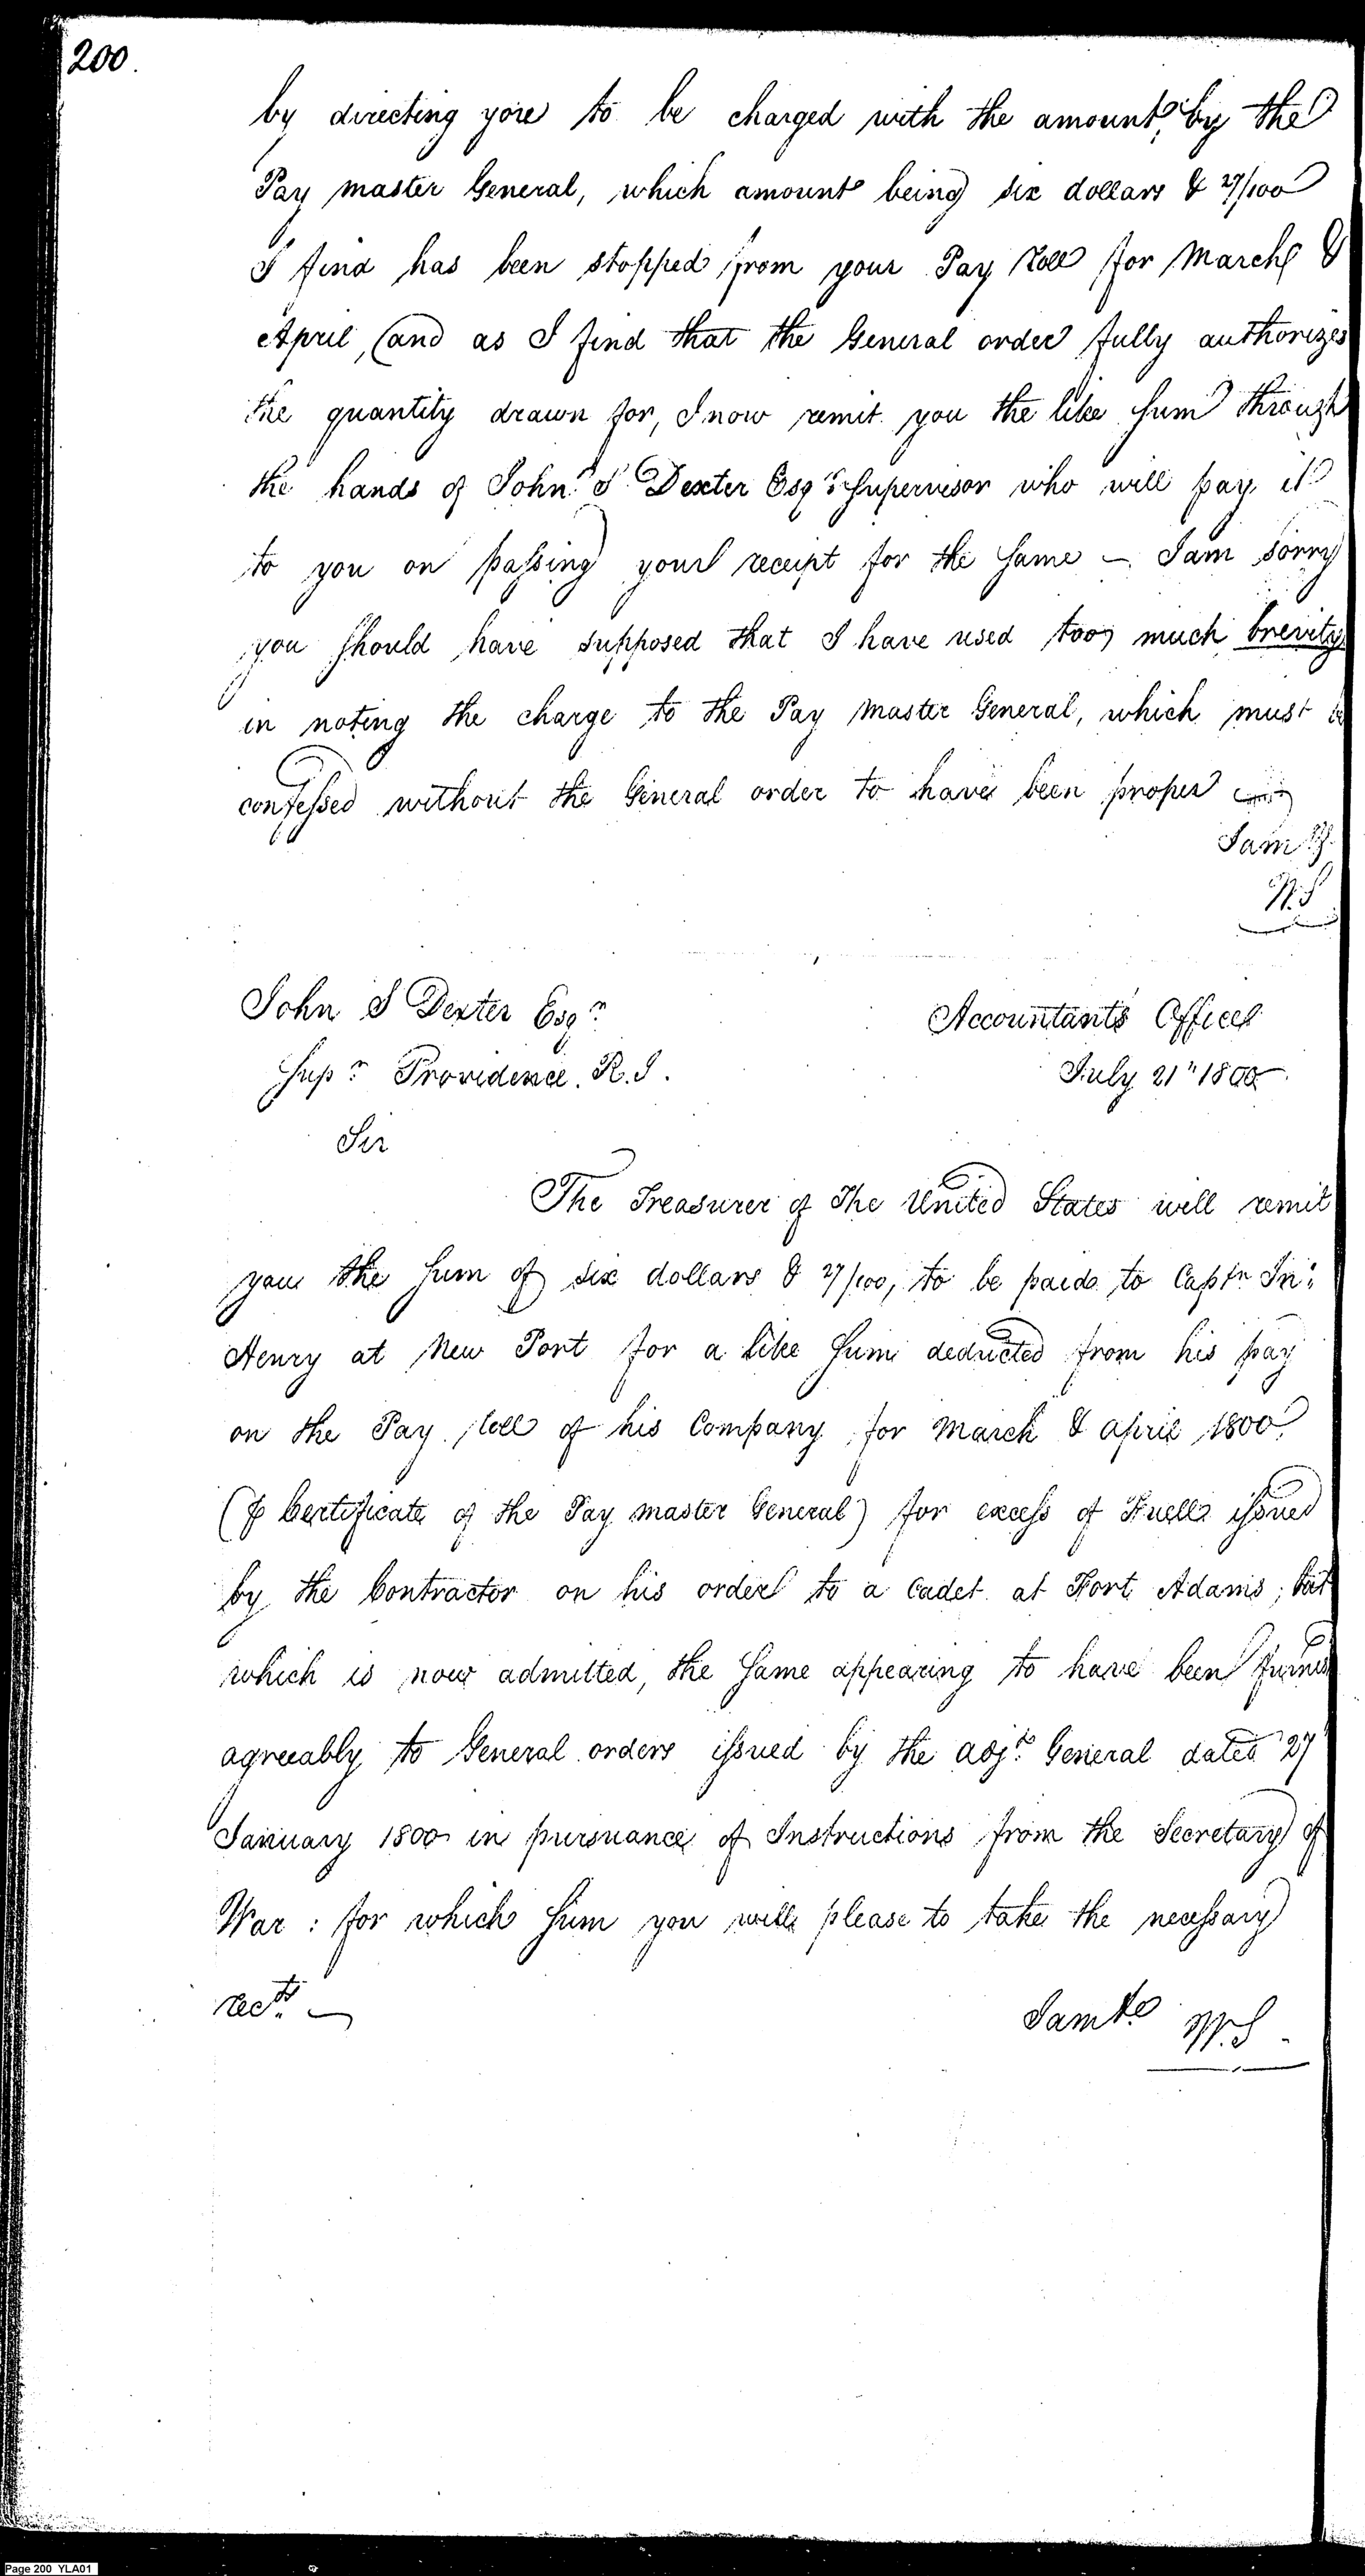 200.
by directing you to be charged with the amount, by the
Pay master General, which amount being six dollars & 27/100
I find has been stopped from your Pay Roll for March &
April, (and as I find that the General order fully authorizes
the quantity drawn for, I now remit you the like sum through
the hands of John S Dexter Esqr Supervisor who will pay it
to you on passing your receipt for the same — I am sorry
you should have supposed that I have used too much brevity
in noting the charge to the Pay Master General, which must be
confessed without the General order to have been proper
I am &
W.S
John S Dexter Esqr
Accountants Office
Supr Providence. R.I.
July 21" 1800
Sir
The Treasurer of The United States will remit
you the sum of six dollars & 27/100, to be paid to Captn Jn:
Henry at New Port for a like sum deducted from his pay
on the Pay Roll of his Company for March & April 1800
(P Certificate of the Pay master General) for excess of Fuell issued
by the Contractor on his order to a Cadet at Fort Adams; but
which is now admitted, the same appearing to have been furnis
agreeably to General orders issued by the adjt General dated 27
January 1800 in pursuance of Instructions from the Secretary of
War : for which sum you will please to take the necessary
rects —
I am &c W.S
Page 200 YLA01